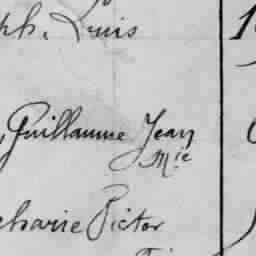 ph, Louis
, Guillaume Jean
Mie
charie Victor